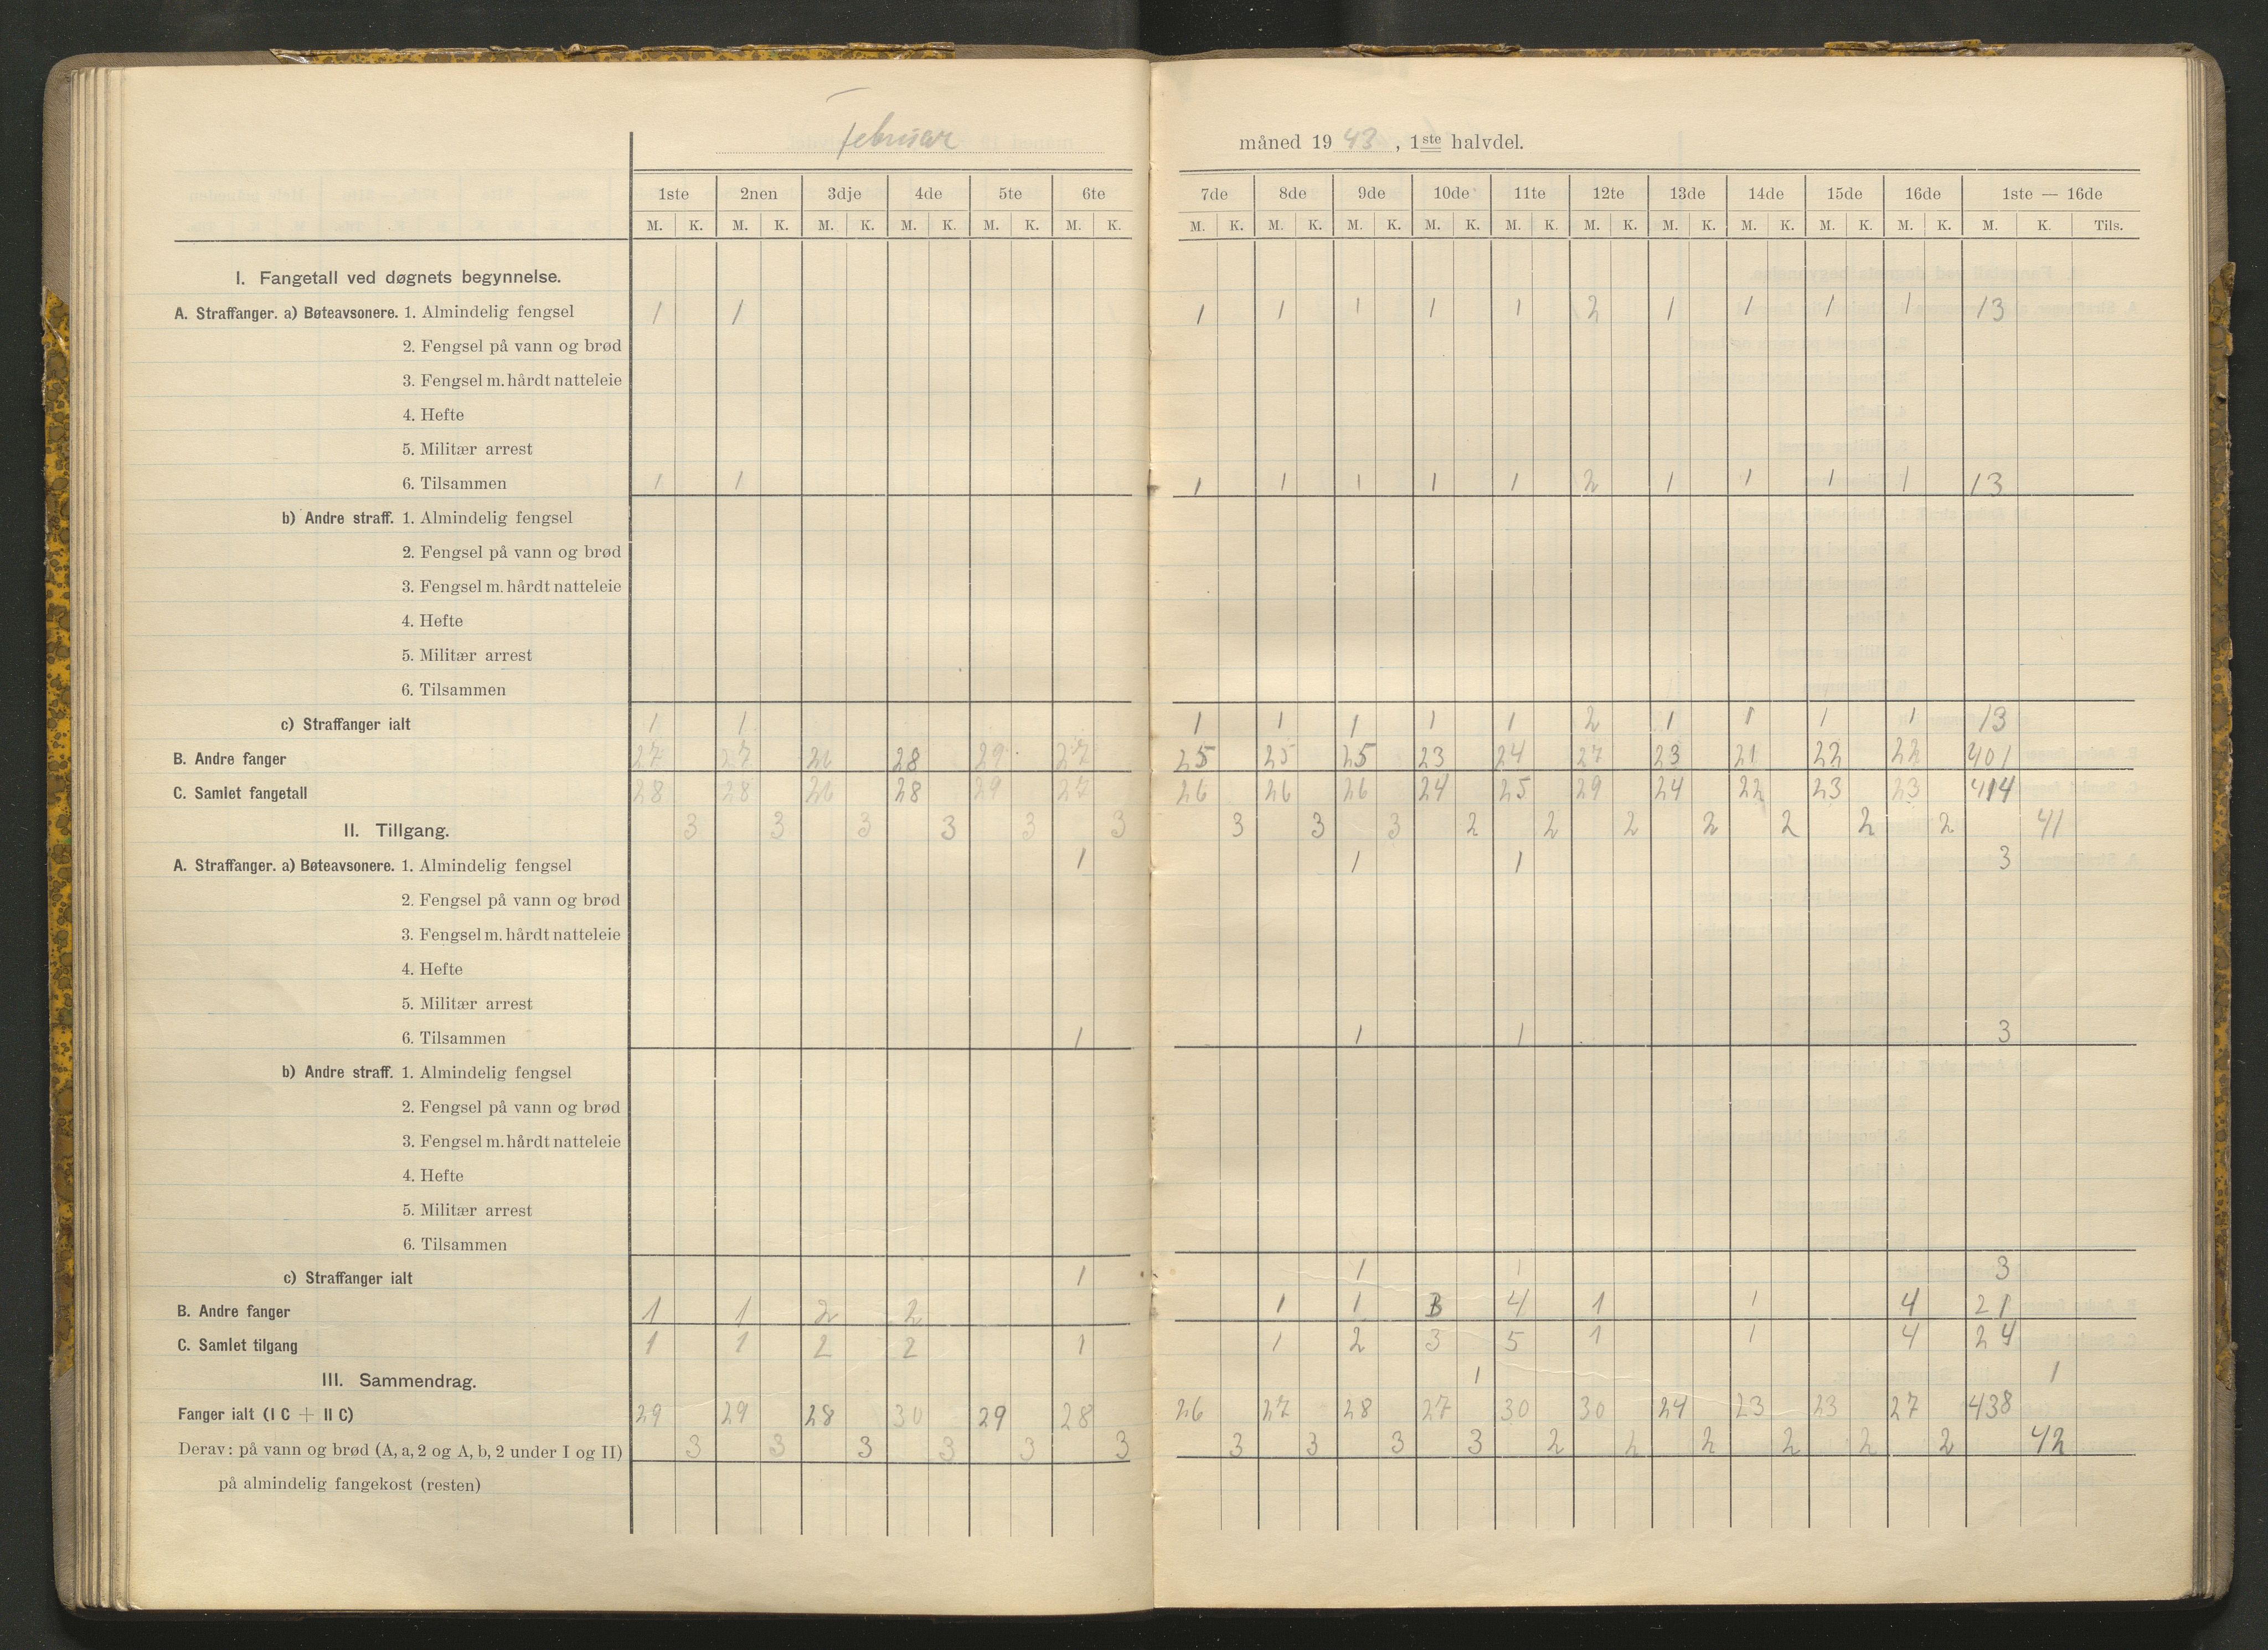 Februar måned 1943, 1ste halvdel.
1ste 2nen 3dje 4de 5te 6te 7de 8de 9de 10de 11te 12te 13de 14de 15de 16de 1ste — 16de
M. K. M. K. M. K. M. K. M. K. M. K. M. K. M. K. M. K. M. K. M. K. M. K. M. K. M. K. M. K. M. K. M. K. Tils.
I. Fangetall ved døgnets begynnelse.
A. Straffanger. a) Bøteavsonere. 1. Almindelig fengsel 1 1 1 1 1 1 1 2 1 1 1 1 13
2. Fengsel på vann og brød
3. Fengsel m. hårdt natteleie
4. Hefte
5. Militær arrest
6. Tilsammen 1 1 1 1 1 1 1 2 1 1 1 1 13
b) Andre straff. 1. Almindelig fengsel
2. Fengsel på vann og brød
3. Fengsel m. hårdt natteleie
4. Hefte
5. Militær arrest
6. Tilsammen
c) Straffanger ialt 1 1 1 1 1 1 1 2 1 1 1 1 13
B. Andre fanger 27 27 26 28 29 27 25 25 25 23 24 27 23 21 22 22 401
C. Samlet fangetall 28 28 26 28 29 27 26 26 26 24 25 29 24 22 23 23 414
II. Tillgang. 3 3 3 3 3 3 3 3 3 2 2 2 2 2 2 2 41
A. Straffanger. a) Bøteavsonere. 1. Almindelig fengsel 1 1 1 3
2. Fengsel på vann og brød
3. Fengsel m. hårdt natteleie
4. Hefte
5. Militær arrest
6. Tilsammen 1 1 1 3
b) Andre straff. 1. Almindelig fengsel
2. Fengsel på vann og brød
3. Fengsel m. hårdt natteleie
4. Hefte
5. Militær arrest
6. Tilsammen
c) Straffanger ialt 1 1 1 3
B. Andre fanger 1 1 2 2 1 1 3 4 1 1 4 21
C. Samlet tilgang 1 1 2 2 1 1 2 3 5 1 1 4 24
III. Sammendrag. 1 1
Fanger ialt (I C + II C) 29 29 28 30 29 28 26 27 28 27 30 30 24 23 23 27 438
Derav: på vann og brød (A, a, 2 og A, b, 2 under I og II) 3 3 3 3 3 3 3 3 3 3 2 2 2 2 2 2 42
på almindelig fangekost (resten)